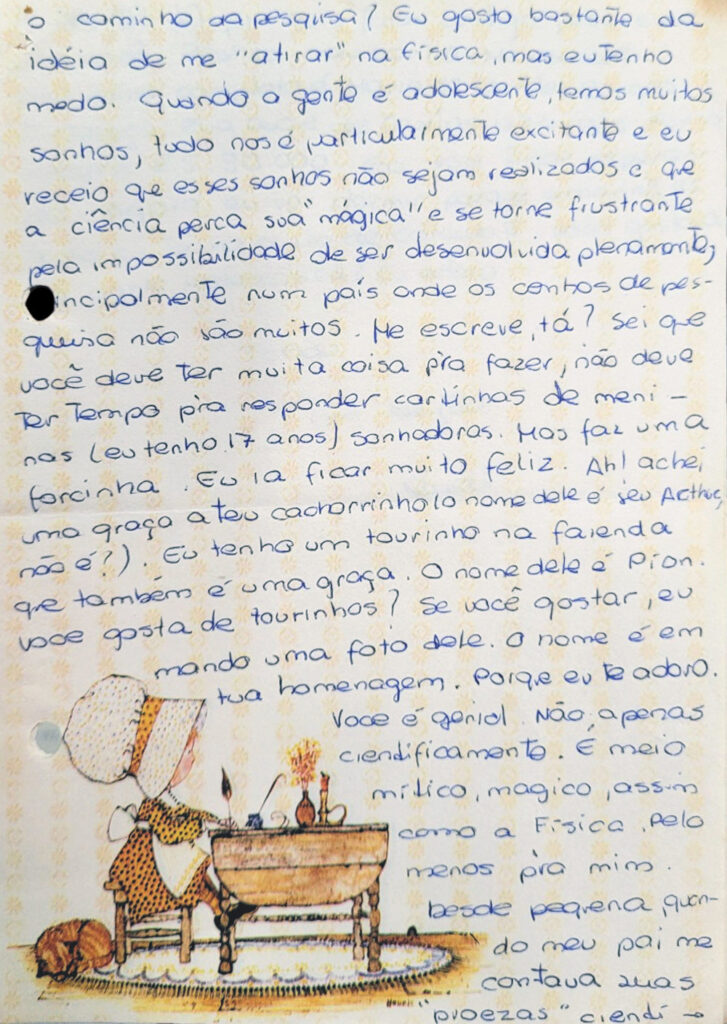 o caminho da pesquisa? Eu gosto bastante da
idéia de me "atirar" na física, mas eu tenho
medo. Quando a gente é adolescente, temos muitos
sonhos, tudo nos é particularmente excitante e eu
receio que esses sonhos não sejam realizados e que
a ciência perca sua "mágica" e se torne frustrante
pela impossibilidade de ser desenvolvida plenamente,
incipalmente num país onde os centros de pes-
quisa não são muitos. Me escreve, tá? Sei que
você deve ter muita coisa p'ra fazer, não deve
ter tempo p'ra responder cartinhas de meni-
nas (eu tenho 17 anos) sonhadoras. Mas faz uma
forcinha. Eu ia ficar muito feliz. Ah! achei
uma graça a teu cachorrinho (o nome dele é seu Arthur,
não é?). Eu tenho um tourinho na fazenda
que também é uma graça. O nome dele é Píon.
voce gosta de tourinhos? Se você gostar, eu
mando uma foto dele. O nome é em
tua homenagem. Porque eu te adoro.
Voce é genial. Não, apenas
ciendificamente. É meio
mítico, magico, assim
como a Física, pelo
menos p'ra mim.
Desde pequena, quan-
do meu pai me
contava suas
"proezas" ciendí →